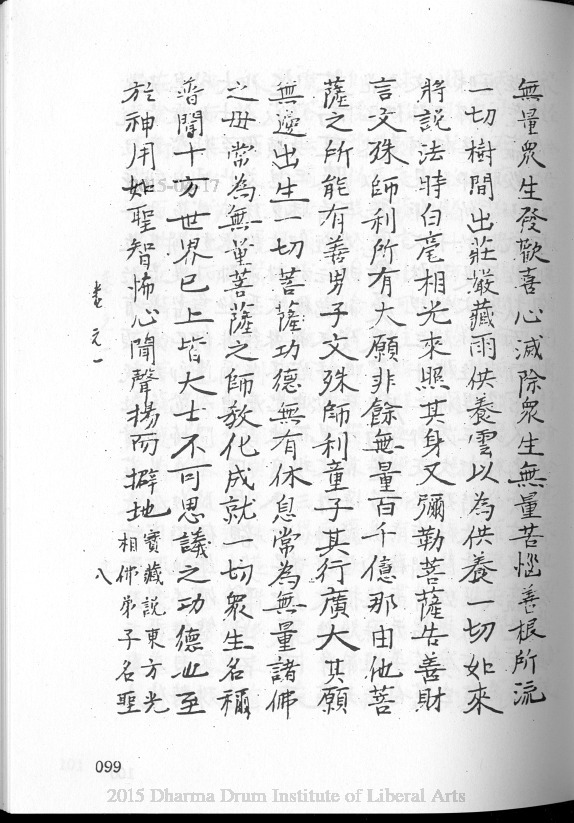 無量眾生發歡喜心滅除眾生無量苦惱善根所流
一切樹間出莊嚴藏雨供養雲以為供養一切如來
將說法時白毫相光來照其身又彌勒菩薩告善財
言文殊師利所有大願非餘無量百千億那由他菩
薩之所能有善男子文殊師利童子其行廣大其願
無邊出生一切菩薩功德無有休息常為無量諸佛
之母常為無量菩薩之師教化成就一切眾生名稱
普聞十方世界已上皆大士不可思議之功德也至
於神用如聖智怖心聞聲揚而擗地
寶藏說東方光
相佛弟子名聖
八
099
2015 Dharma Drum Institute of Liberal Arts